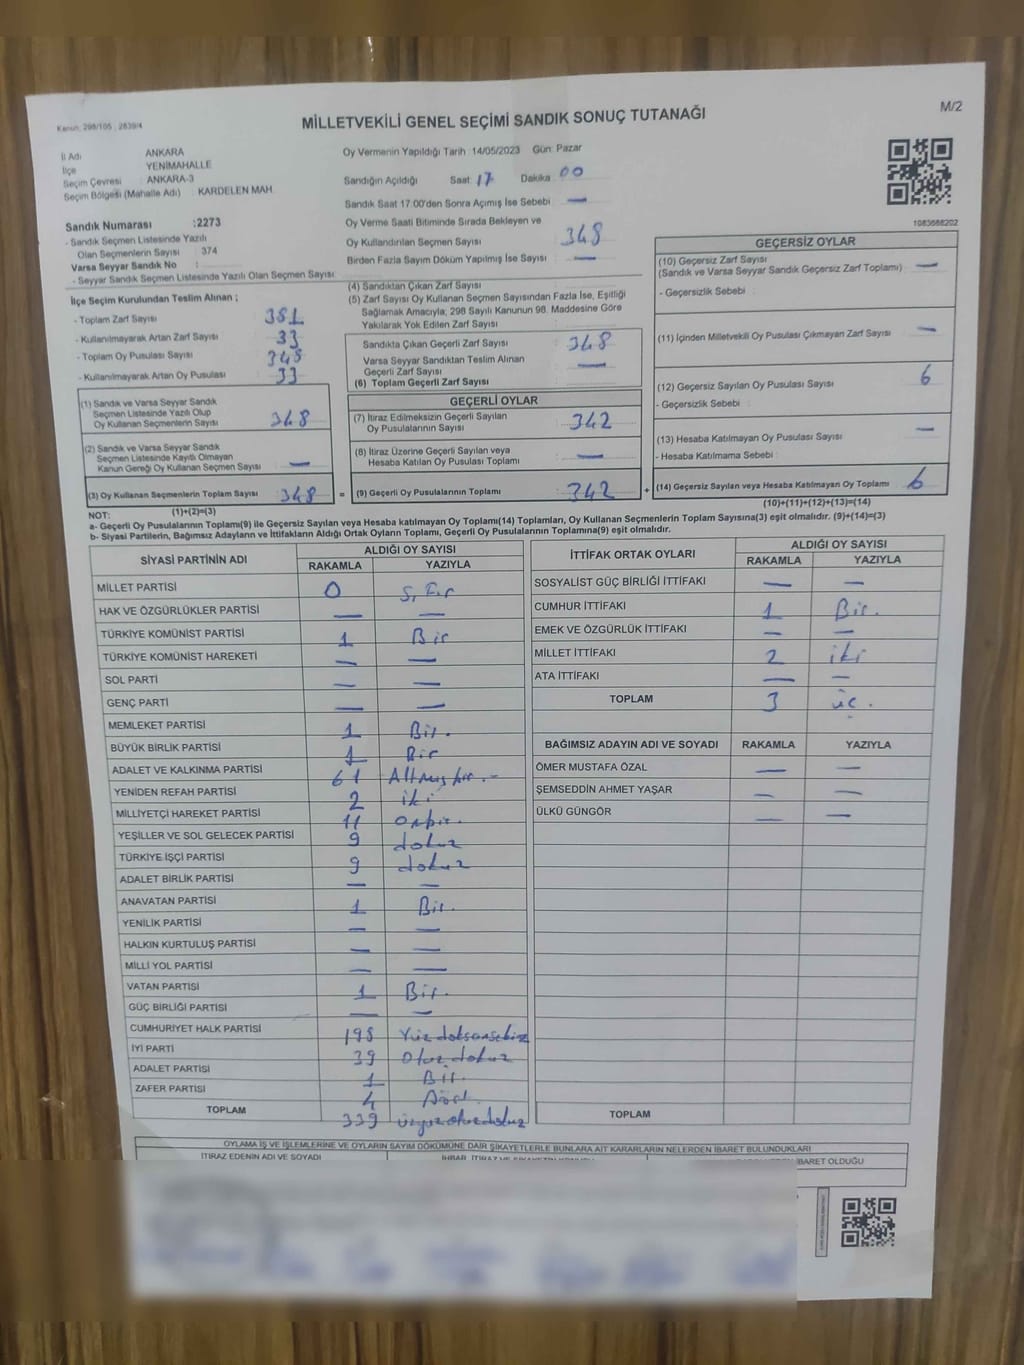 Kanun: 298/105 , 2839/4
MİLLETVEKİLİ GENEL SEÇİMİ SANDIK SONUÇ TUTANAĞI
M/2
İl Adı ANKARA
İlçe YENİMAHALLE
Seçim Çevresi : ANKARA-3
Seçim Bölgesi (Mahalle Adı) : KARDELEN MAH.
Sandık Numarası :2273
- Sandık Seçmen Listesinde Yazılı
Olan Seçmenlerin Sayısı : 374
Varsa Seyyar Sandık No :
- Seyyar Sandık Seçmen Listesinde Yazılı Olan Seçmen Sayısı :
Oy Vermenin Yapıldığı Tarih : 14/05/2023 Gün: Pazar
Sandığın Açıldığı Saat: 17 Dakika: 00
Sandık Saat 17.00'den Sonra Açımış İse Sebebi : —
Oy Verme Saati Bitiminde Sırada Bekleyen ve
Oy Kullandırılan Seçmen Sayısı : 348
Birden Fazla Sayım Döküm Yapılmış İse Sayısı : —
1083688202
İlçe Seçim Kurulundan Teslim Alınan ;
- Toplam Zarf Sayısı : 381
- Kullanılmayarak Artan Zarf Sayısı : 33
- Toplam Oy Pusulası Sayısı : 348
- Kullanılmayarak Artan Oy Pusulası : 33
(1) Sandık ve Varsa Seyyar Sandık
Seçmen Listesinde Yazılı Olup
Oy Kullanan Seçmenlerin Sayısı : 348
(2) Sandık ve Varsa Seyyar Sandık
Seçmen Listesinde Kayıtlı Olmayan
Kanun Gereği Oy Kullanan Seçmen Sayısı : —
(3) Oy Kullanan Seçmenlerin Toplam Sayısı : 348 =
(1)+(2)=(3)
(4) Sandıktan Çıkan Zarf Sayısı :
(5) Zarf Sayısı Oy Kullanan Seçmen Sayısından Fazla İse, Eşitliği
Sağlamak Amacıyla; 298 Sayılı Kanunun 98. Maddesine Göre
Yakılarak Yok Edilen Zarf Sayısı :
Sandıkta Çıkan Geçerli Zarf Sayısı : 348
Varsa Seyyar Sandıktan Teslim Alınan
Geçerli Zarf Sayısı : —
(6) Toplam Geçerli Zarf Sayısı :
GEÇERLİ OYLAR
(7) İtiraz Edilmeksizin Geçerli Sayılan
Oy Pusulalarının Sayısı : 342
(8) İtiraz Üzerine Geçerli Sayılan veya
Hesaba Katılan Oy Pusulası Toplamı : —
(9) Geçerli Oy Pusulalarının Toplamı : 342 +
GEÇERSİZ OYLAR
(10) Geçersiz Zarf Sayısı
(Sandık ve Varsa Seyyar Sandık Geçersiz Zarf Toplamı) : —
- Geçersizlik Sebebi :
(11) İçinden Milletvekili Oy Pusulası Çıkmayan Zarf Sayısı : —
(12) Geçersiz Sayılan Oy Pusulası Sayısı : 6
- Geçersizlik Sebebi :
(13) Hesaba Katılmayan Oy Pusulası Sayısı : —
- Hesaba Katılmama Sebebi :
(14) Geçersiz Sayılan veya Hesaba Katılmayan Oy Toplamı : 6
(10)+(11)+(12)+(13)=(14)
NOT:
a- Geçerli Oy Pusulalarının Toplamı(9) ile Geçersiz Sayılan veya Hesaba katılmayan Oy Toplamı(14) Toplamları, Oy Kullanan Seçmenlerin Toplam Sayısına(3) eşit olmalıdır. (9)+(14)=(3)
b- Siyasi Partilerin, Bağımsız Adayların ve İttifakların Aldığı Ortak Oyların Toplamı, Geçerli Oy Pusulalarının Toplamına(9) eşit olmalıdır.
SİYASİ PARTİNİN ADI ALDIĞI OY SAYISI
RAKAMLA YAZIYLA
MİLLET PARTİSİ 0 Sıfır
HAK VE ÖZGÜRLÜKLER PARTİSİ — —
TÜRKİYE KOMÜNİST PARTİSİ 1 Bir
TÜRKİYE KOMÜNİST HAREKETİ — —
SOL PARTİ — —
GENÇ PARTİ — —
MEMLEKET PARTİSİ 1 Bir.
BÜYÜK BİRLİK PARTİSİ 1 Bir
ADALET VE KALKINMA PARTİSİ 61 Altmışbir.-
YENİDEN REFAH PARTİSİ 2 iki
MİLLİYETÇİ HAREKET PARTİSİ 11 Onbir.
YEŞİLLER VE SOL GELECEK PARTİSİ 9 dokuz
TÜRKİYE İŞÇİ PARTİSİ 9 dokuz
ADALET BİRLİK PARTİSİ — —
ANAVATAN PARTİSİ 1 Bir.
YENİLİK PARTİSİ — —
HALKIN KURTULUŞ PARTİSİ — —
MİLLİ YOL PARTİSİ — —
VATAN PARTİSİ 1 Bir.
GÜÇ BİRLİĞİ PARTİSİ — —
CUMHURİYET HALK PARTİSİ 198 Yüz doksansekiz
İYİ PARTİ 39 Otuz dokuz
ADALET PARTİSİ 1 Bir.
ZAFER PARTİSİ 4 Dört
TOPLAM 339 Üçyüzotuzdokuz
İTTİFAK ORTAK OYLARI ALDIĞI OY SAYISI
RAKAMLA YAZIYLA
SOSYALİST GÜÇ BİRLİĞİ İTTİFAKI — —
CUMHUR İTTİFAKI 1 Bir.
EMEK VE ÖZGÜRLÜK İTTİFAKI — —
MİLLET İTTİFAKI 2 iki
ATA İTTİFAKI — —
TOPLAM 3 üç.
BAĞIMSIZ ADAYIN ADI VE SOYADI RAKAMLA YAZIYLA
ÖMER MUSTAFA ÖZAL — —
ŞEMSEDDİN AHMET YAŞAR — —
ÜLKÜ GÜNGÖR — —
TOPLAM
OYLAMA İŞ VE İŞLEMLERİNE VE OYLARIN SAYIM DÖKÜMÜNE DAİR ŞİKAYETLERLE BUNLARA AİT KARARLARIN NELERDEN İBARET BULUNDUKLARI
İTİRAZ EDENİN ADI VE SOYADI İHBAR, İTİRAZ VE ŞİKAYETİN KONUSU İBARET OLDUĞU